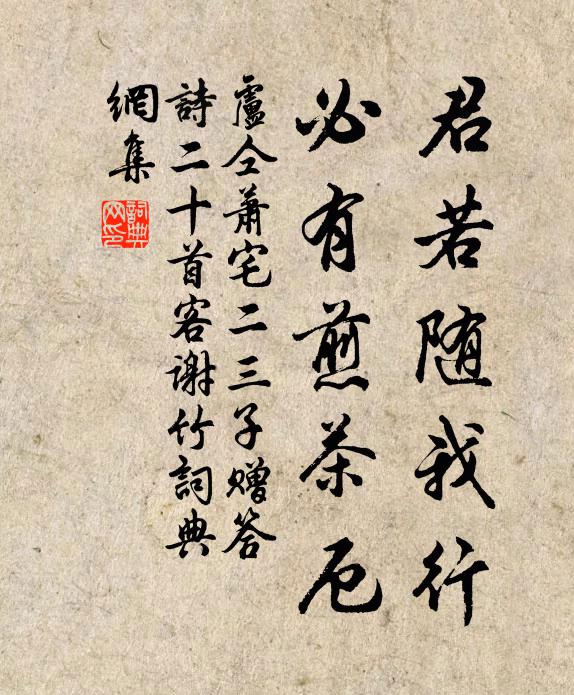 君若随我行
必有煎茶厄
盧仝蕭宅二三子贈答
詩二十首客謝竹詞典
網集
詞典
网印